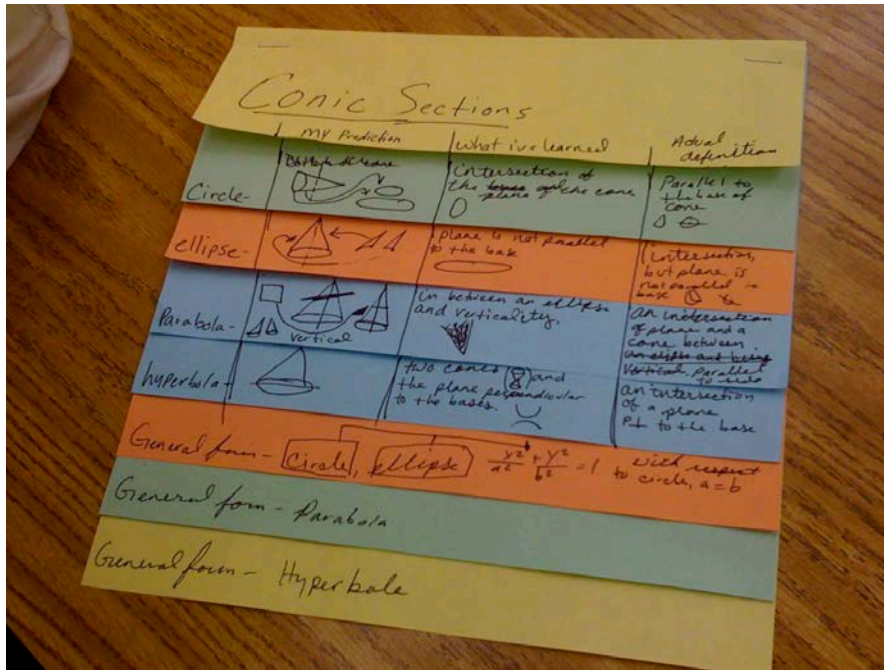 Conic Sections
My Prediction
What i've learned
Actual definition
Circle-
intersection of
the plane of the cone
Parallel to
the base of
cone
ellipse-
plane is not parallel
to the base
intersection,
but plane is
not parallel to
base
Parabola-
vertical
in between an ellipse
and verticality.
an intersection
of plane and a
cone between
an ellipse and being
vertical. parallel
to side
hyperbola-
two cones and
the plane perpendicular
to the bases.
an intersection
of a plane
to the base
General form- circle, ellipse x²/a² + y²/b² = 1 with respect
to circle, a=b
General form- Parabola
General form- Hyperbola